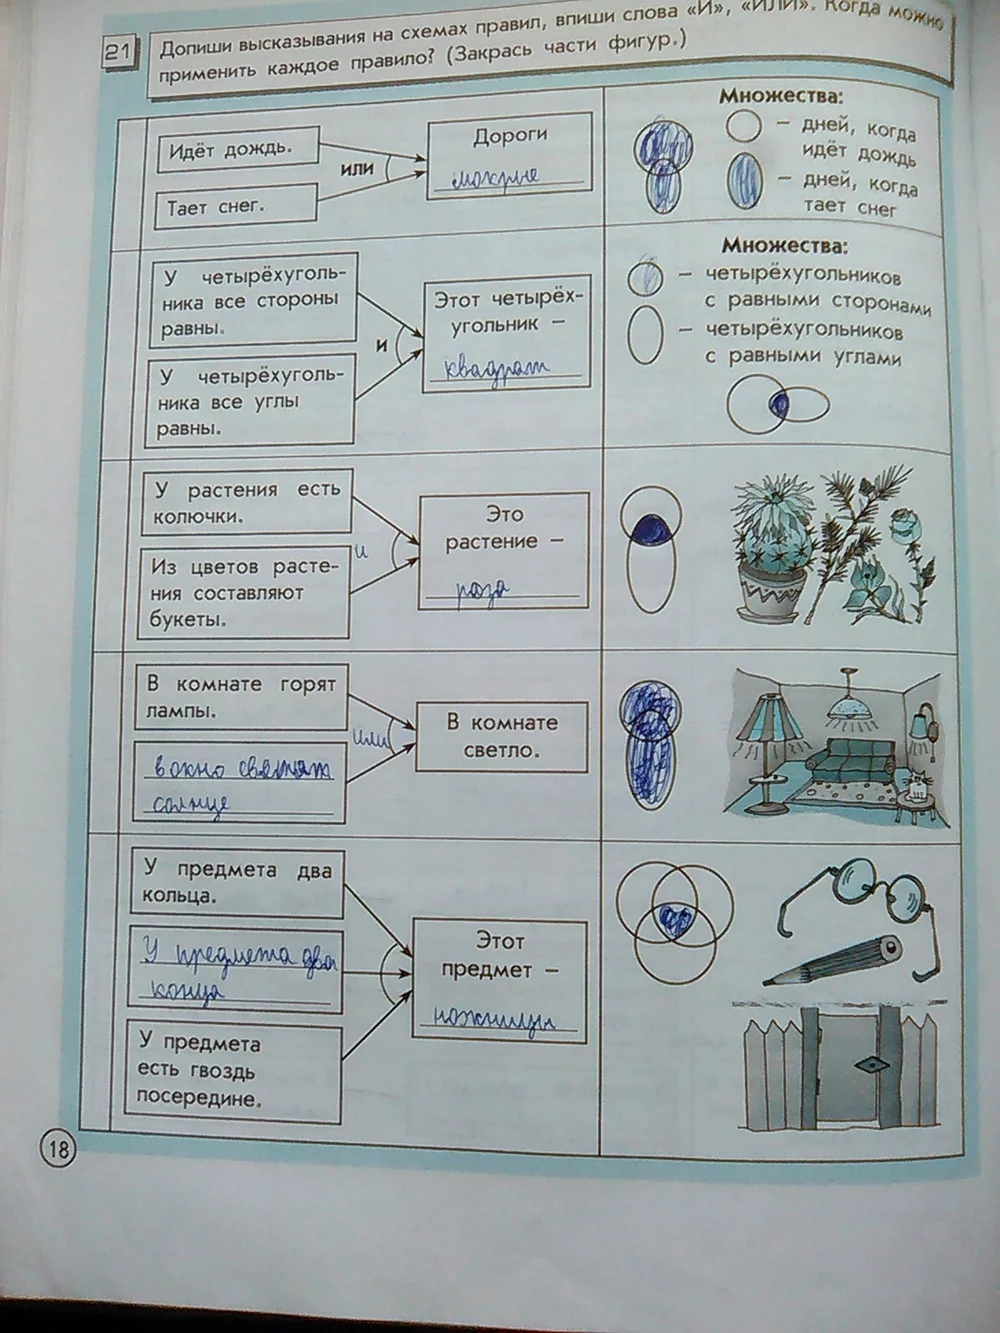 21
Допиши высказывания на схемах правил, впиши слова «И», «ИЛИ». Когда можно
применить каждое правило? (Закрась части фигур.)
Идёт дождь.
Тает снег.
или
Дороги
мокрые
Множества:
– дней, когда
идёт дождь
– дней, когда
тает снег
У четырёхуголь-
ника все стороны
равны.
У четырёхуголь-
ника все углы
равны.
и
Этот четырёх-
угольник –
квадрат
Множества:
– четырёхугольников
с равными сторонами
– четырёхугольников
с равными углами
У растения есть
колючки.
Из цветов расте-
ния составляют
букеты.
и
Это
растение –
роза
В комнате горят
лампы.
в окно светит
солнце
или
В комнате
светло.
У предмета два
кольца.
У предмета два
конца
У предмета
есть гвоздь
посередине.
Этот
предмет –
ножницы
18